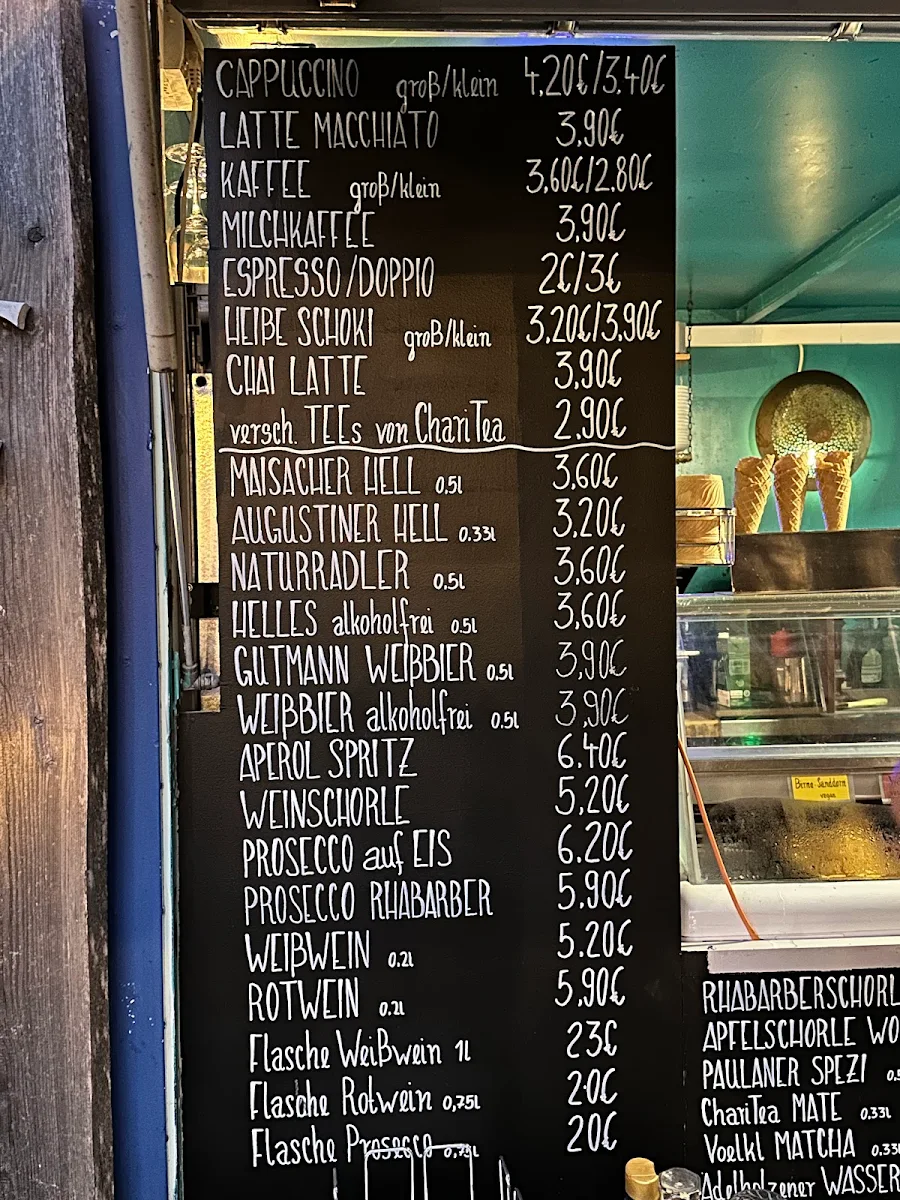 CAPPUCCINO groß/klein 4,20€/3,40€
LATTE MACCHIATO 3,90€
KAFFEE groß/klein 3,60€/2,80€
MILCHKAFFEE 3,90€
ESPRESSO/DOPPIO 2€/3€
HEIßE SCHOKI groß/klein 3,20€/3,90€
CHAI LATTE 3,90€
versch. TEEs von ChariTea 2,90€
MAISACHER HELL 0,5l 3,60€
AUGUSTINER HELL 0,33l 3,20€
NATURRADLER 0,5l 3,60€
HELLES alkoholfrei 0,5l 3,60€
GUTMANN WEIßBIER 0,5l 3,90€
WEIßBIER alkoholfrei 0,5l 3,90€
APEROL SPRITZ 6.40€
WEINSCHORLE 5,20€
PROSECCO auf EIS 6.20€
PROSECCO RHABARBER 5.90€
WEIßWEIN 0.2l 5.20€
ROTWEIN 0.2l 5,90€
Flasche Weißwein 1l 23€
Flasche Rotwein 0,75l 20€
Flasche Prosecco 0,75l 20€
Birne-Sanddorn
vegan
RHABARBERSCHORL
APFELSCHORLE WO
PAULANER SPEZI 0,5
ChariTea MATE 0.33l
Voelkl MATCHA 0.33
Adelholzener WASSER